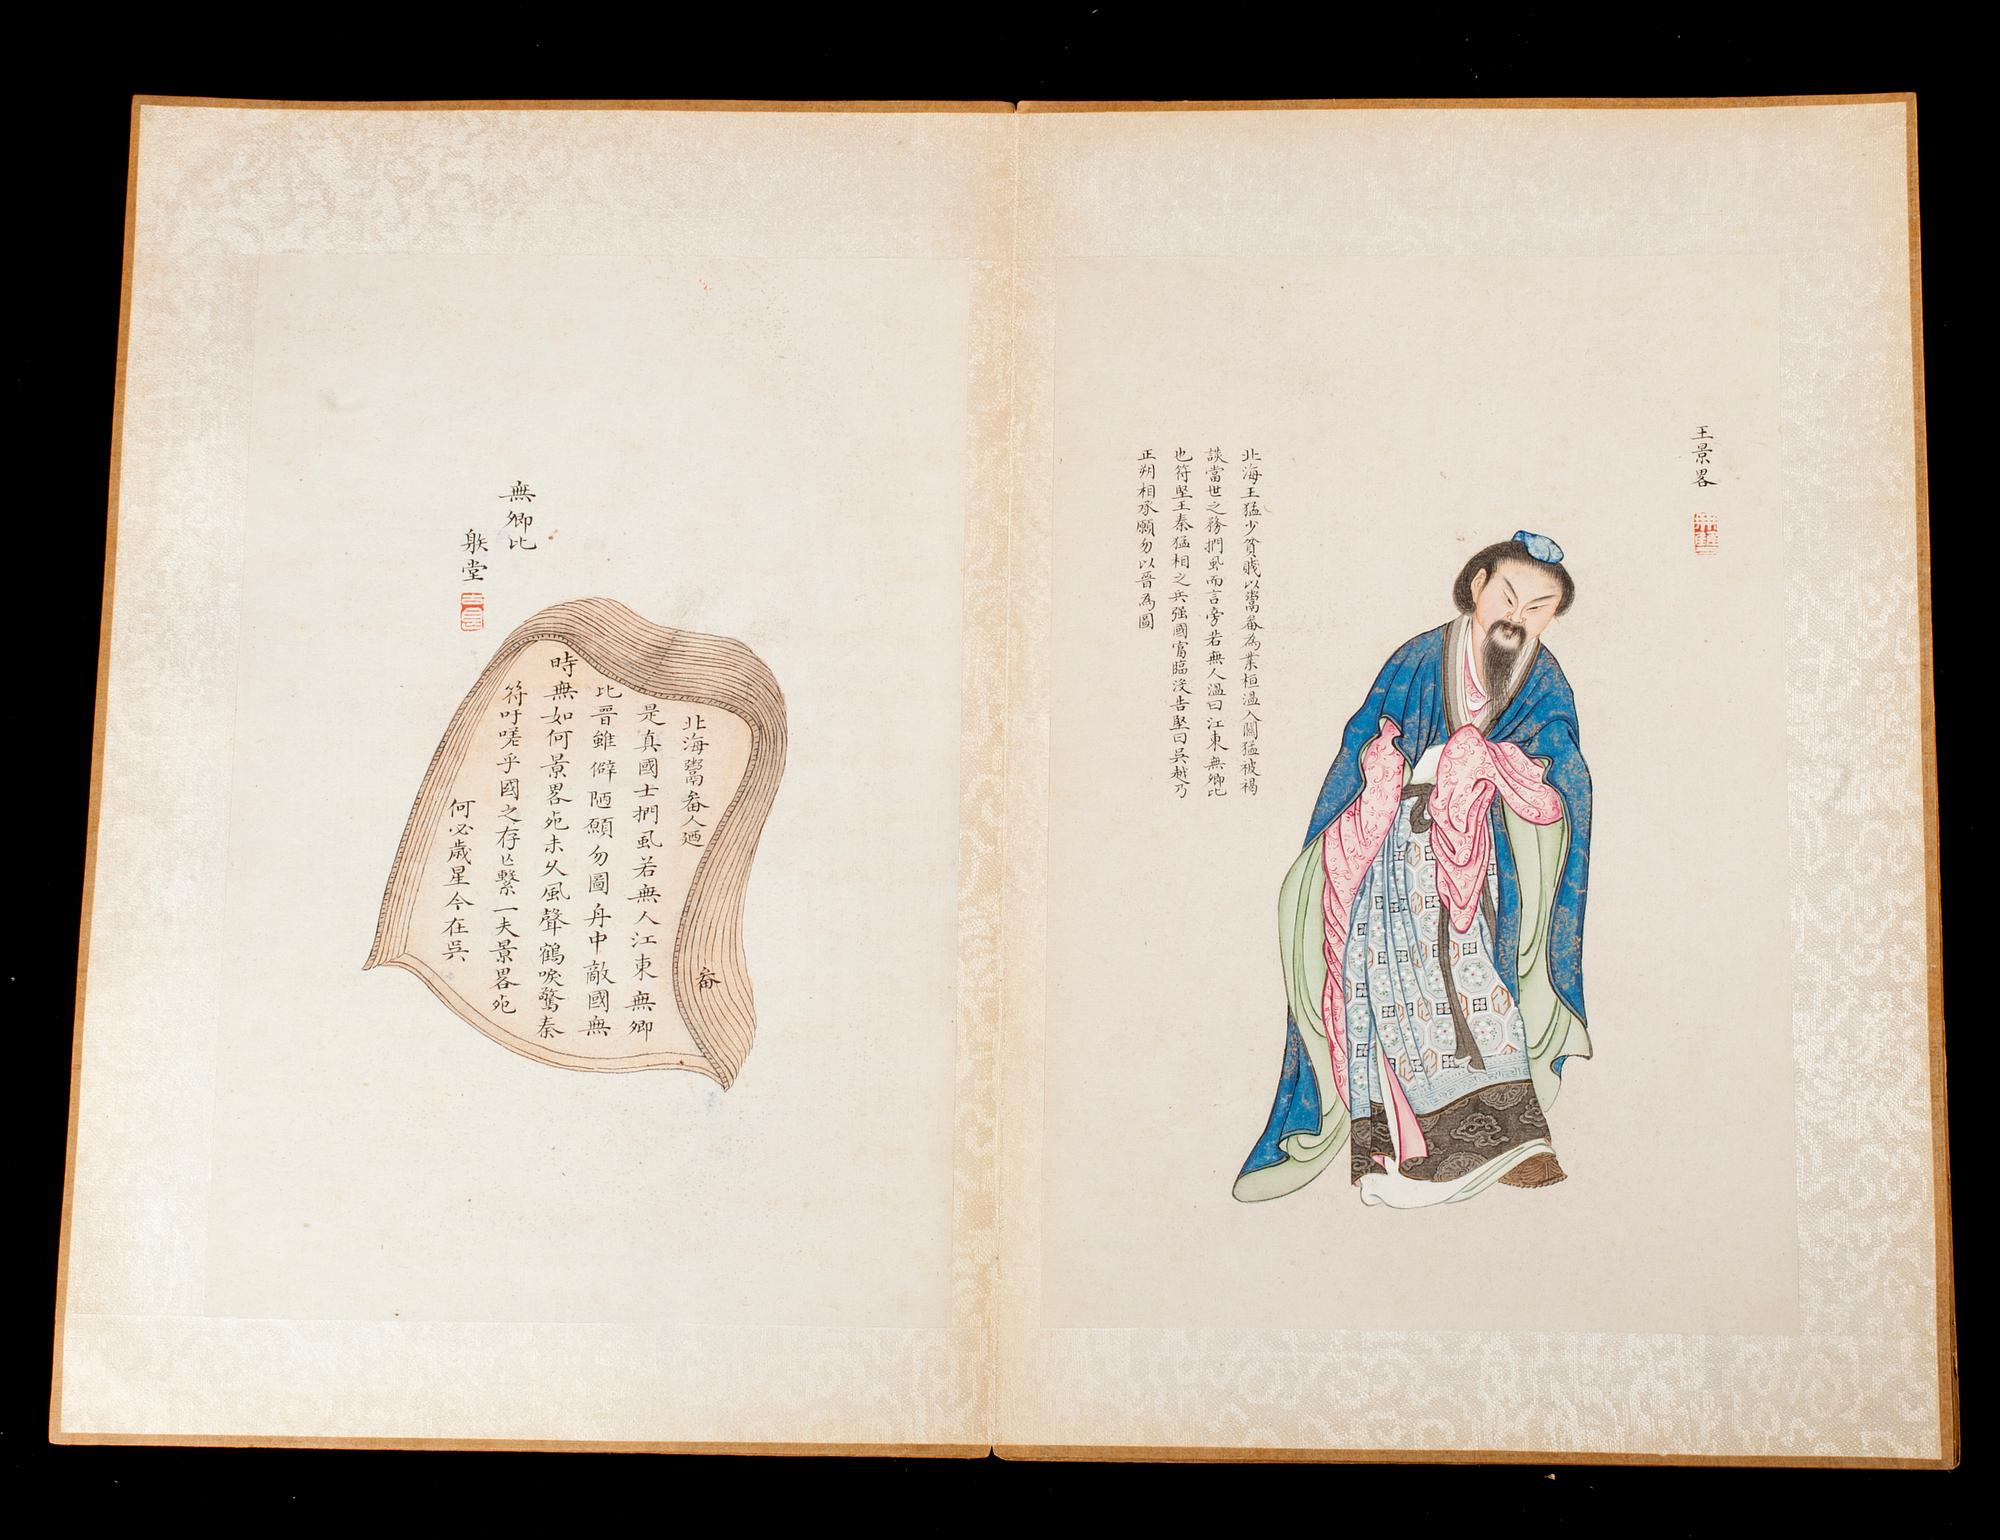 王景畧
北海王猛少貧賤以鬻畚為業桓溫入關猛被褐
談當世之務捫虱而言旁若無人溫曰江東無卿比
也符堅王秦猛相之兵强國富臨沒告堅曰吳越乃
正朔相承願勿以晉為圖
無卿比
躲堂
畚
北海鬻畚人廼
是真國士捫虱若無人江東無卿
比晉雖僻陋願勿圖舟中敵國無
時無如何景畧死未久風聲鶴唳驚秦
符吁嗟乎國之存亡繫一夫景畧死
何必歲星今在吳